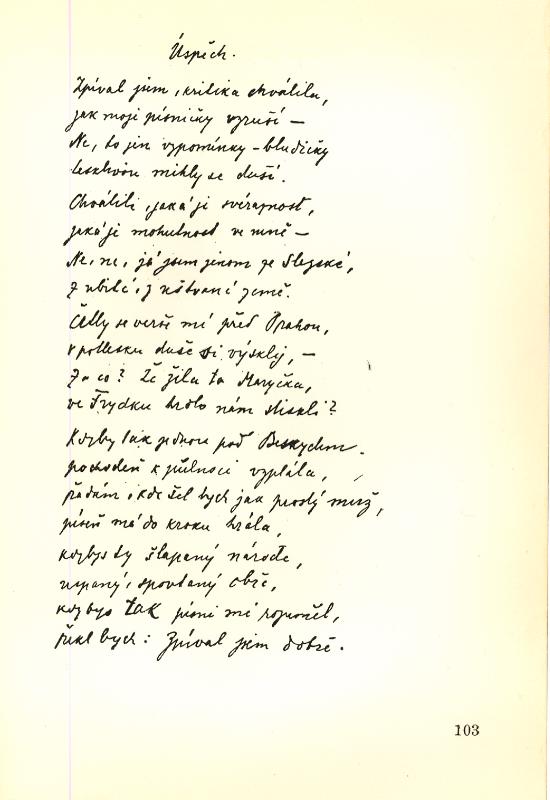 Úspěch.
Zpíval jsem, kritika chválila,
jak moje písničky vzruší —
Ne, to jen vzpomínky – bludičky
tesklivou mihly se duší.
Chválili, jaká je svéráznost,
jaká je mohutnost ve mně —
Ne, ne, já jsem jenom ze Slezské,
z ubité, z uštvané země.
Četly se verše mé před Prahou,
v potlesku duše si výskly, —
Za co? Že žila ta Maryčka,
ve Frydku hrdlo nám stiskli?
Kdyby tak jednou pod Beskydem
pochodeň k půlnoci vzplála,
řadám, kde šel bych jak prostý muž,
píseň má do kroku hrála,
kdybys ty šlapaný národe,
uspaný, spoutaný obře,
kdybys tak písní mé rozuměl,
řekl bych: Zpíval jsem dobře.
103